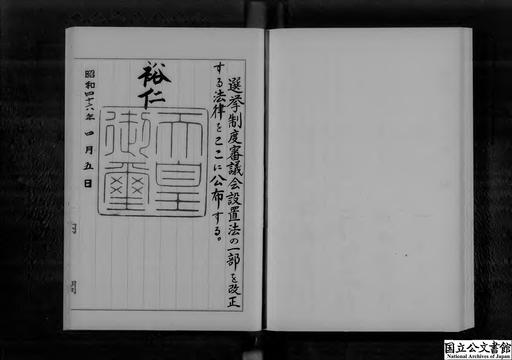 選挙制度審議会設置法の一部を改正
する法律をここに公布する。
裕仁
天皇
御璽
昭和四十六年四月五日
内閣
国立公文書館
National Archives of Japan